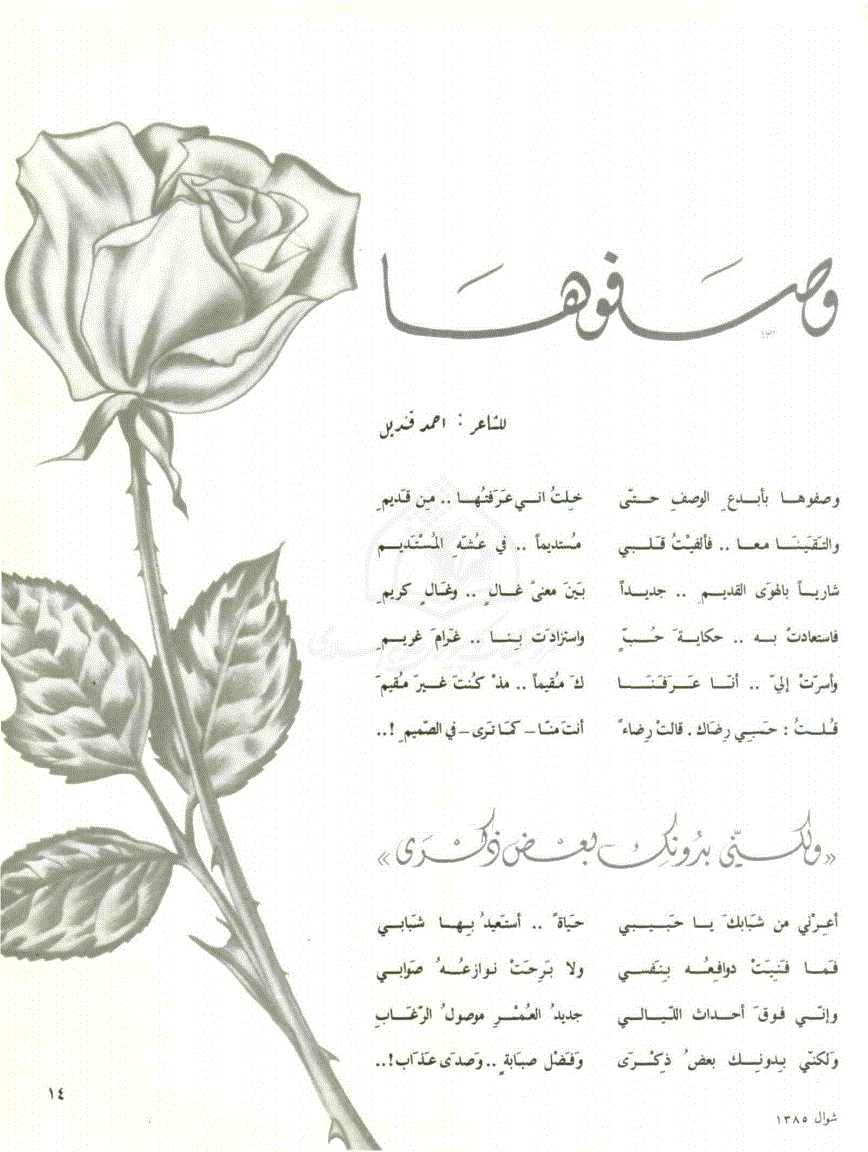 وصفوها
للشاعر : احمد قنديل
وصفوها بأبدعِ الوصفِ حتّى خِلتُ اني عَرَفتُها .. مِن قديمِ
والتقَينَا معا .. فألفيْتُ قلبي مُستديماً .. في عُشّهِ المُسْتَديم
شارياً بالهوَى القديمِ .. جديداً بَينَ معنىً غالٍ .. وغالٍ كريمِ
فاستعادتْ به .. حكايةَ حُبٍّ واستزادَت بِنا .. غَرامَ غريمِ
وأسرّتْ إليّ .. أنّا عَرَفنَا كَ مُقيماً .. مذْ كُنتَ غيرَ مُقيمَ
قُلتُ : حَسبِي رِضَاك . قالتْ رِضاءً أنتَ منّا – كمَا تَرى – في الصّميمِ !..
« ولكنّي بدُونِك بعْض ذِكْرَى »
أعِرْني من شَبابكَ يا حَبيبي حَياةً .. أستَعيدُ بِها شبَابي
فمَا فَنِيَتْ دوافِعُه بِنَفسي ولا بَرِحَتْ نوازعُهُ صَوَابي
وإنّي فوقَ أحداث اللّيالي جديدُ العُمْرِ موصولُ الرّغَابِ
وَلكنّي بِدونِك بعضُ ذِكْرَى وَفَضْل صبَابةٍ .. وَصدَى عَذَاب !..
١٤
شوال ١٣٨٥